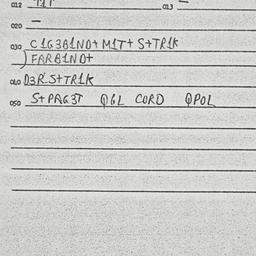 012 TIT 013 —
020 —
030 C1G3B1NO+ M1T+ S+TR1K
) FARB1NO+
040 D3R S+TR1K
050 S+PAG3T QGL CORD QPOL